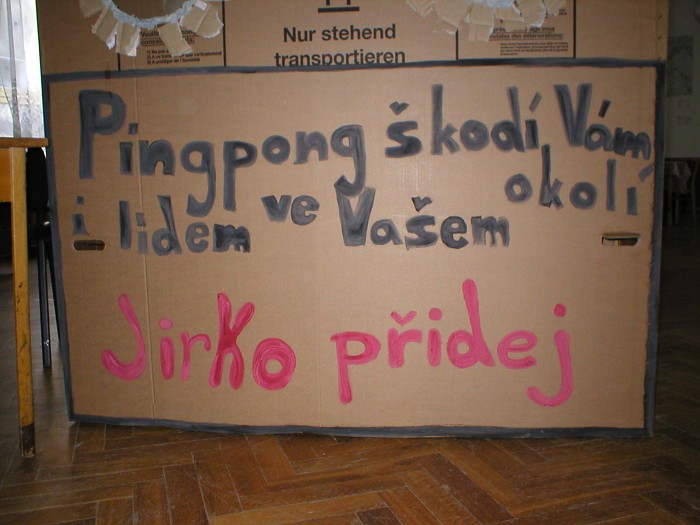 Nur stehend
transportieren
Pingpong škodí Vám
i lidem ve Vašem okolí
Jirko přidej